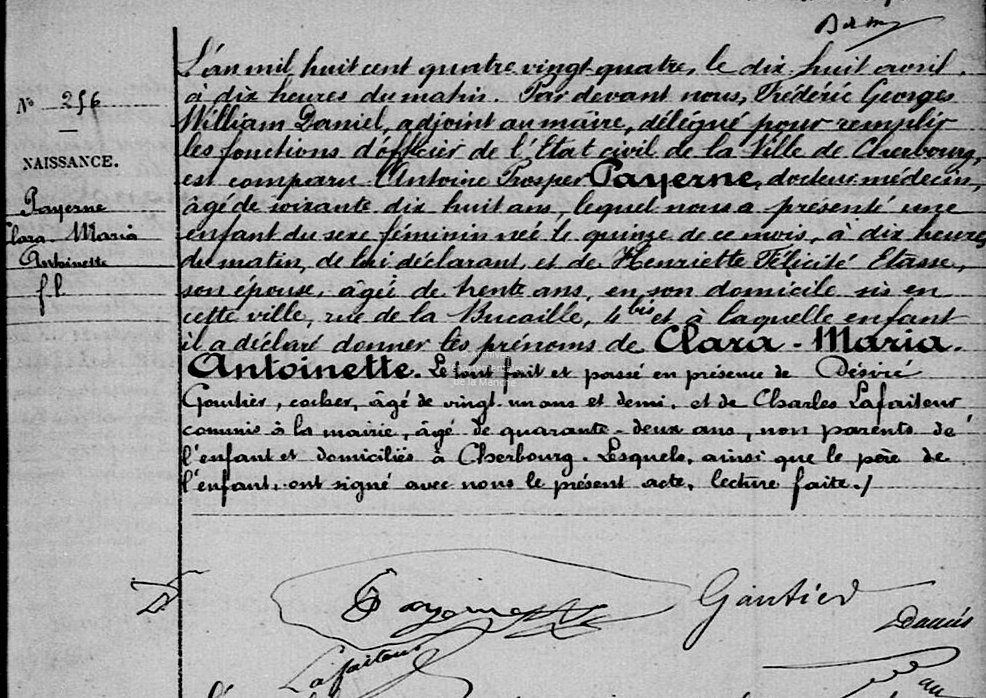 N° 256
NAISSANCE.
Payerne
Clara-Maria
Antoinette
fl
L'an mil huit cent quatre vingt quatre, le dix huit avril,
à dix heures du matin. Par devant nous, Frédéric Georges
William Daniel, adjoint au maire, délégué pour remplir
les fonctions d'officier de l'État civil de la Ville de Cherbourg,
est comparu Antoine Prosper Payerne, docteur médecin,
âgé de soixante dix huit ans, lequel nous a présenté une
enfant du sexe féminin née le quinze de ce mois, à dix heures
du matin, de lui déclarant, et de Henriette Félicité Etasse,
son épouse, âgée de trente ans, en son domicile sis en
cette ville, rue de la Bucaille, 4 bis et à laquelle enfant
il a déclaré donner les prénoms de Clara-Maria.
Antoinette. Le tout fait et passé en présence de Désiré
Gautier, cocher, âgé de vingt-un ans et demi, et de Charles Lafaiteur
commis à la mairie, âgé de quarante-deux ans, non parents de
l'enfant et domiciliés à Cherbourg. Lesquels, ainsi que le père de
l'enfant, ont signé avec nous le présent acte, lecture faite./
de la Manche
Payerne
Gautier
Lafaiteur